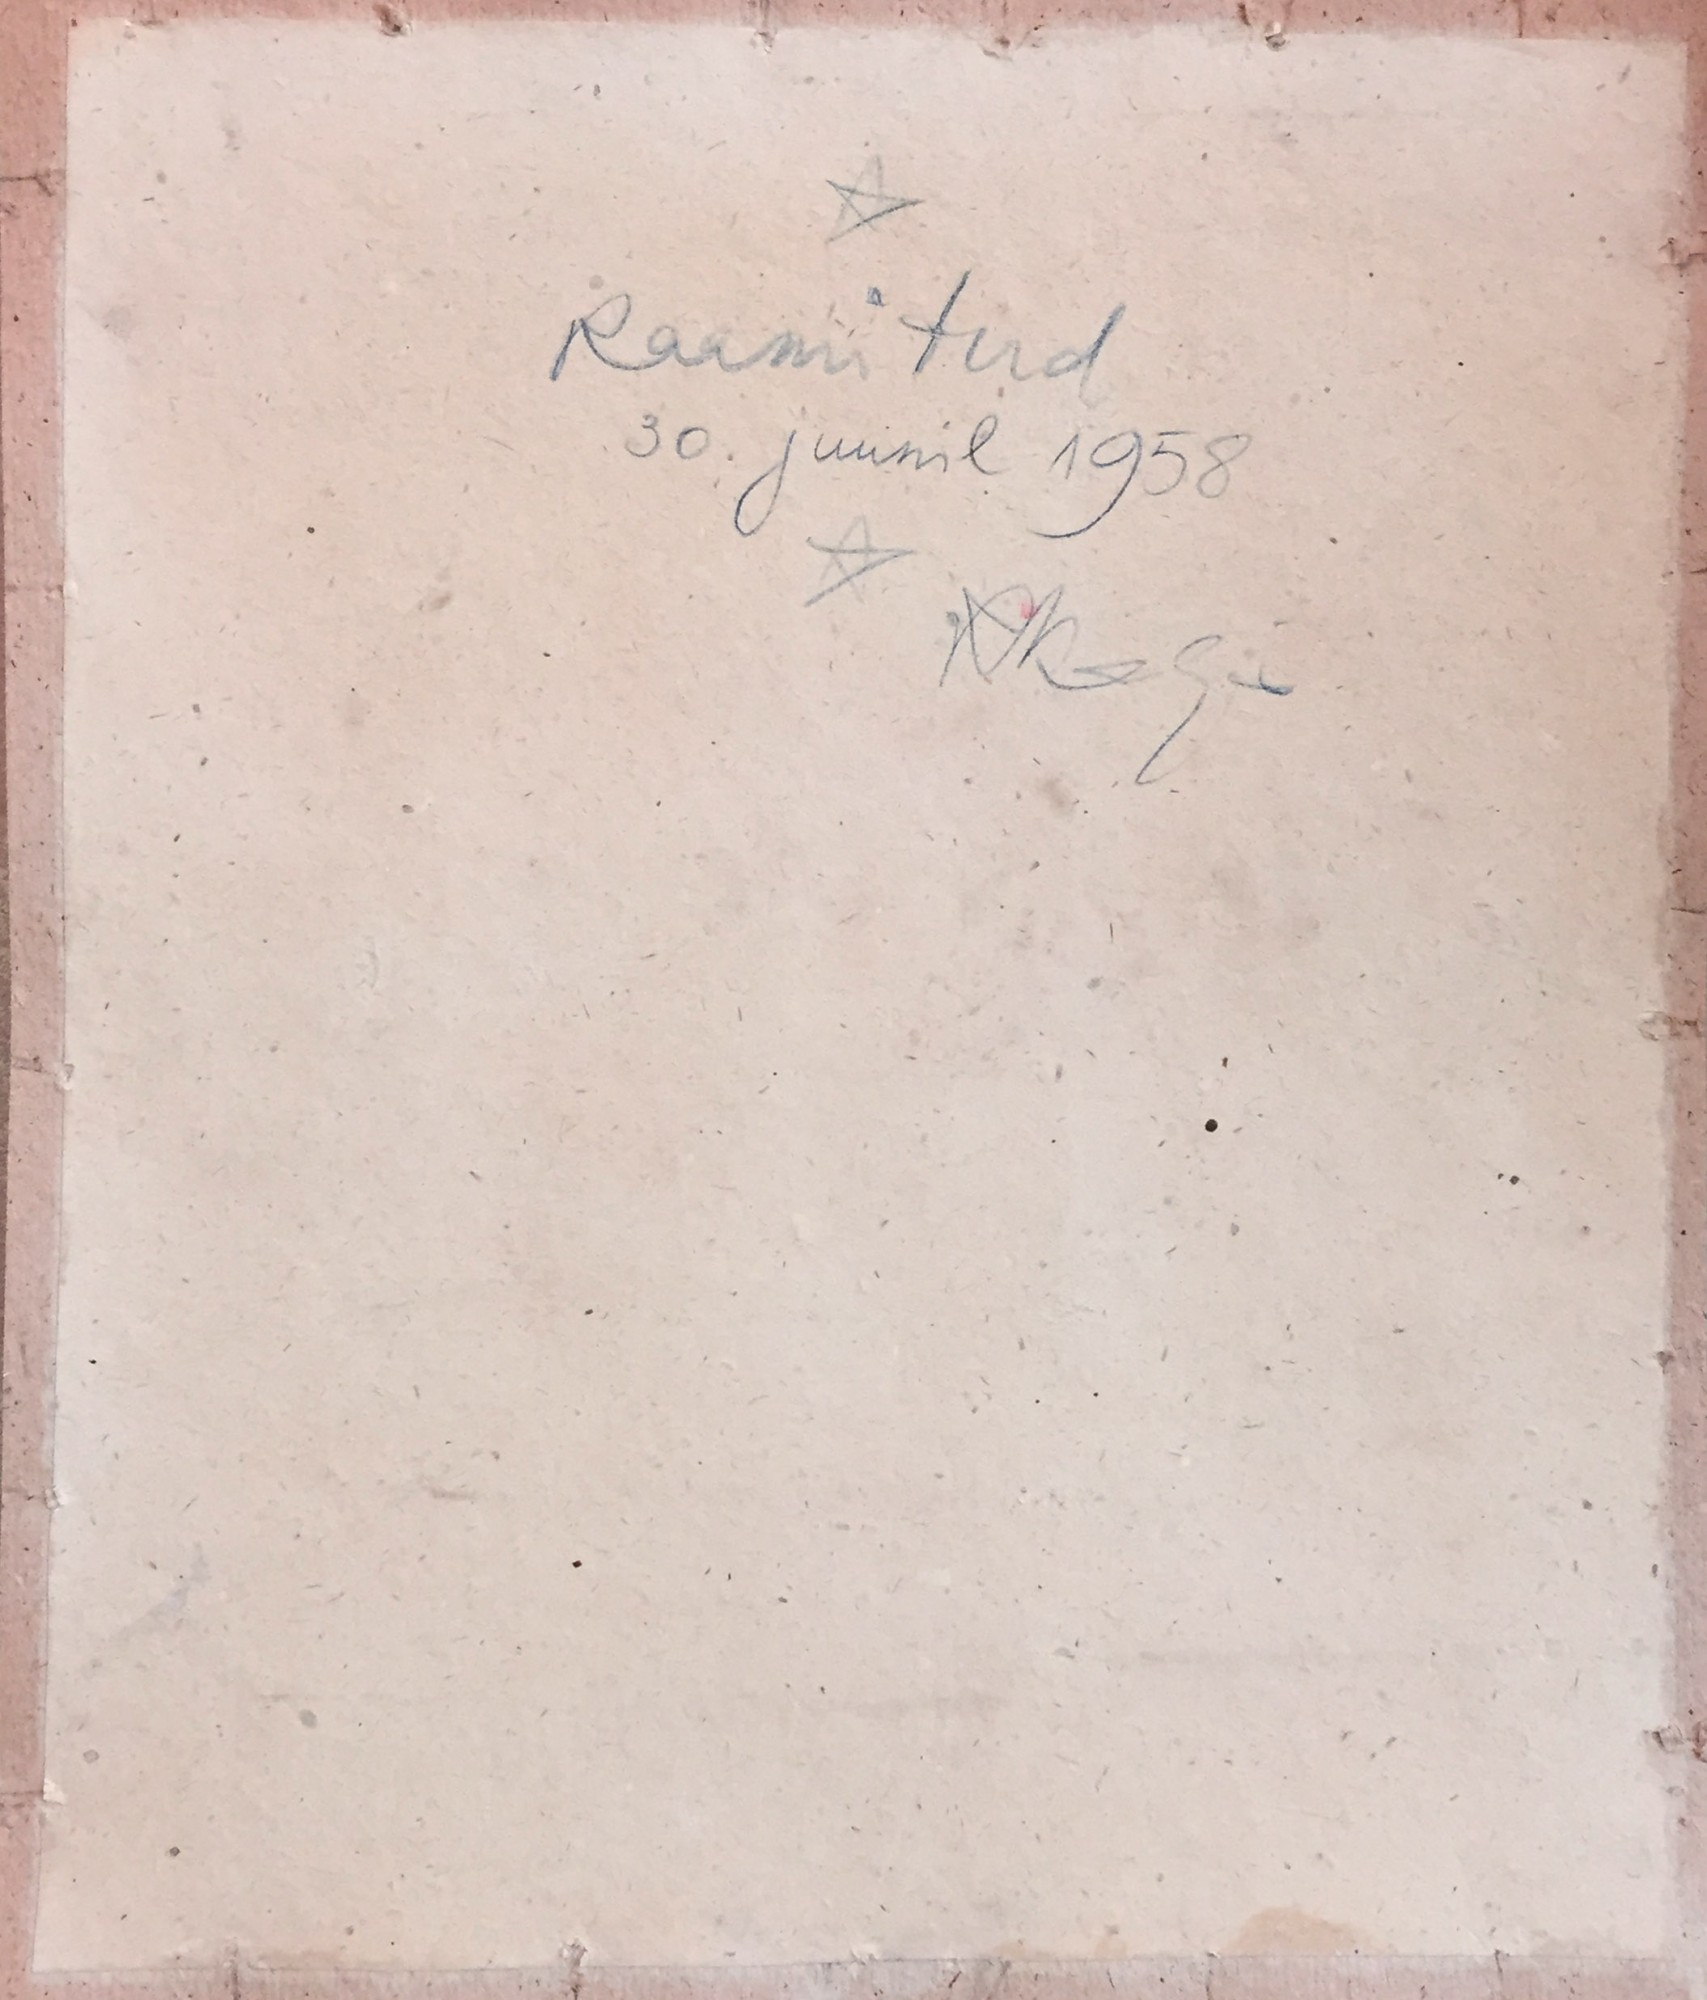 Raamitud
30. juunil 1958